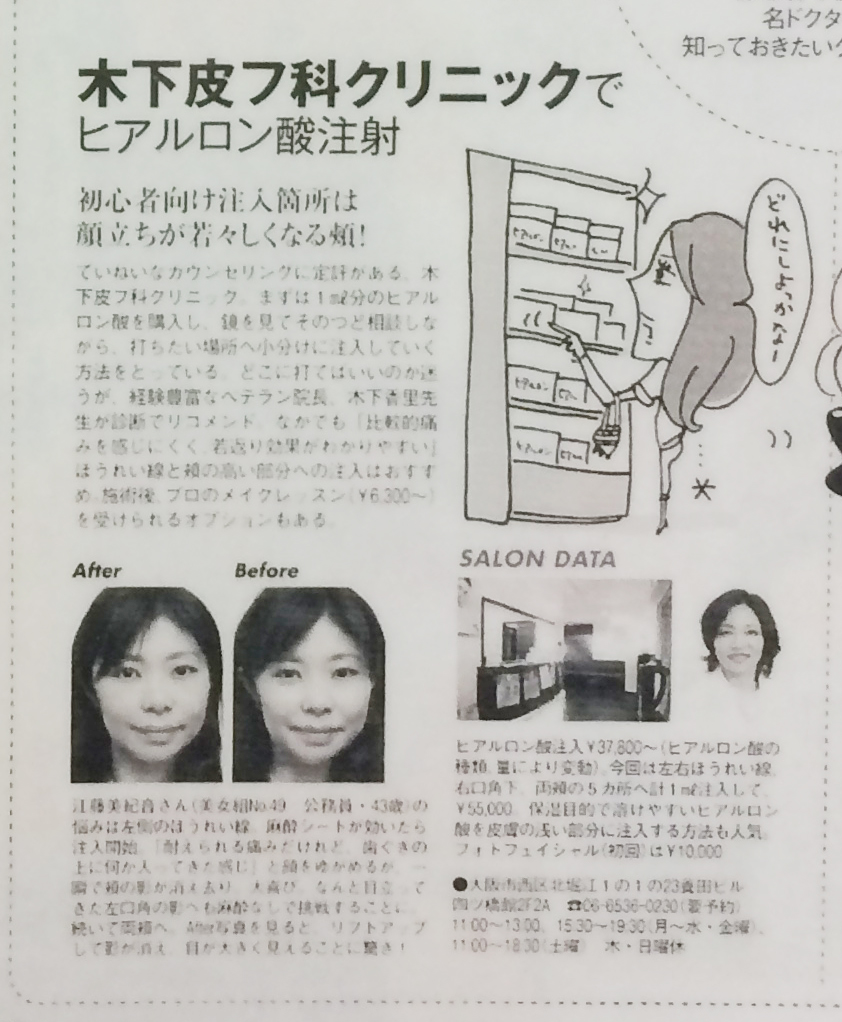 名ドクタ
知っておきたいク
木下皮フ科クリニックで
ヒアルロン酸注射
初心者向け注入箇所は
顔立ちが若々しくなる頬!
ていねいなカウンセリングに定評がある、木
下皮フ科クリニック。まずは1㎖分のヒアル
ロン酸を購入し、鏡を見てそのつど相談しな
がら、打ちたい場所へ小分けに注入していく
方法をとっている。どこに打てばいいのか迷
うが、経験豊富なベテラン院長、木下香里先
生が診断でリコメンド。なかでも「比較的痛
みを感じにくく、若返り効果がわかりやすい」
ほうれい線と頬の高い部分への注入はおすす
め。施術後、プロのメイクレッスン(¥6,300〜)
を受けられるオプションもある。
ヒアルロン
ヒアルロン
ヒアルロン
どれにしよっかなー
After
Before
SALON DATA
江藤美紀音さん(美女組No.49 公務員・43歳)の
悩みは左側のほうれい線。麻酔シートが効いたら
注入開始。「耐えられる痛みだけれど、歯ぐきの
上に何か入ってきた感じ」と顔をゆがめるが、一
瞬で頬の影が消え去り、大喜び。なんと目立って
きた左口角の影へも麻酔なしで挑戦することに。
続いて両頬へ。After写真を見ると、リフトアップ
して影が消え、目が大きく見えることに驚き!
ヒアルロン酸注入¥37,800〜(ヒアルロン酸の
種類、量により変動)。今回は左右ほうれい線、
右口角下、両頬の5カ所へ計1㎖注入して、
¥55,000。保湿目的で溶けやすいヒアルロン
酸を皮膚の浅い部分に注入する方法も人気。
フォトフェイシャル(初回)は¥10,000
●大阪市西区北堀江1の1の23養田ビル
四ツ橋館2F2A ☎06-6536-0230(要予約)
11:00〜13:00、15:30〜19:30(月〜水・金曜)、
11:00〜18:30(土曜) 木・日曜休